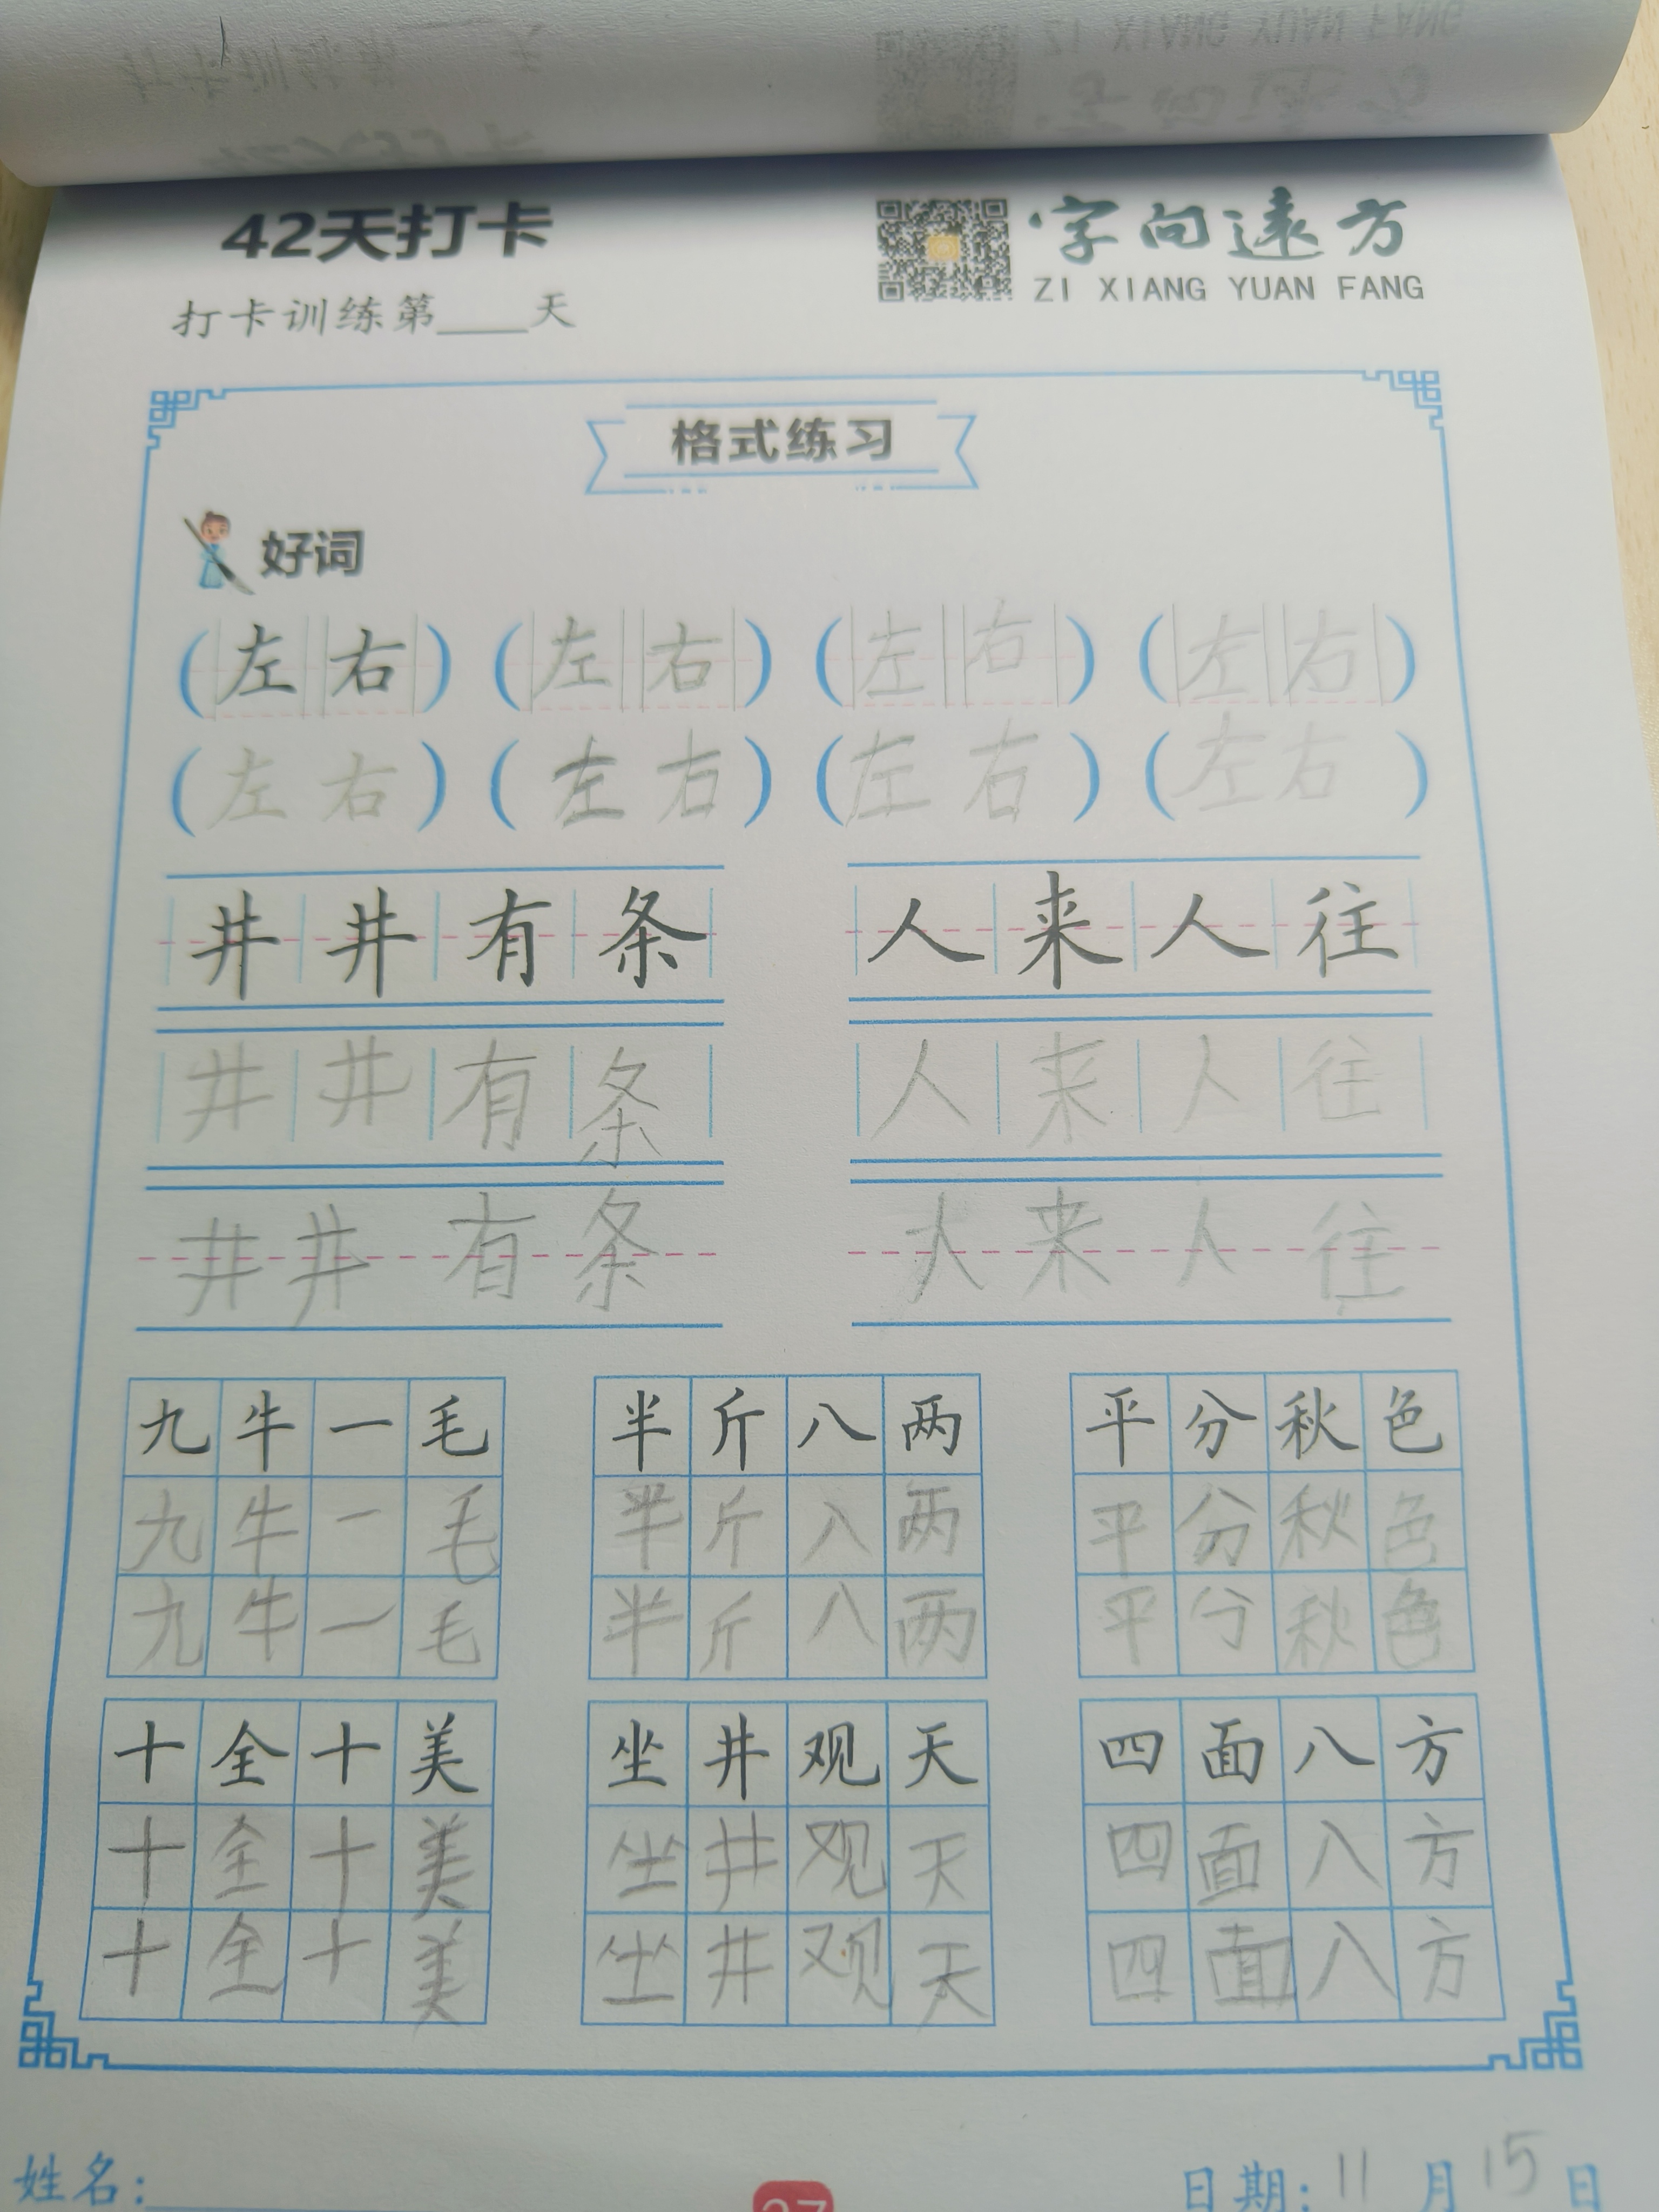 42天打卡
字向远方
ZI XIANG YUAN FANG
打卡训练第____天
格式练习
好词
(左右) (左右) (左右) (左右)
(左右) (左右) (左右) (左右)
井井有条 人来人往
井井有条 人来人往
井井有条 人来人往
九牛一毛 半斤八两 平分秋色
九牛一毛 半斤八两 平分秋色
九牛一毛 半斤八两 平分秋色
十全十美 坐井观天 四面八方
十全十美 坐井观天 四面八方
十全十美 坐井观天 四面八方
姓名: 日期: 11月15日